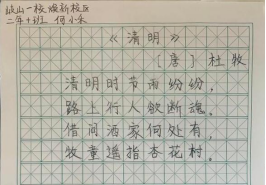 岐山一校焕新校区
二年十班 何小禾
《清明》
[唐] 杜牧
清明时节雨纷纷，
路上行人欲断魂。
借问酒家何处有，
牧童遥指杏花村。